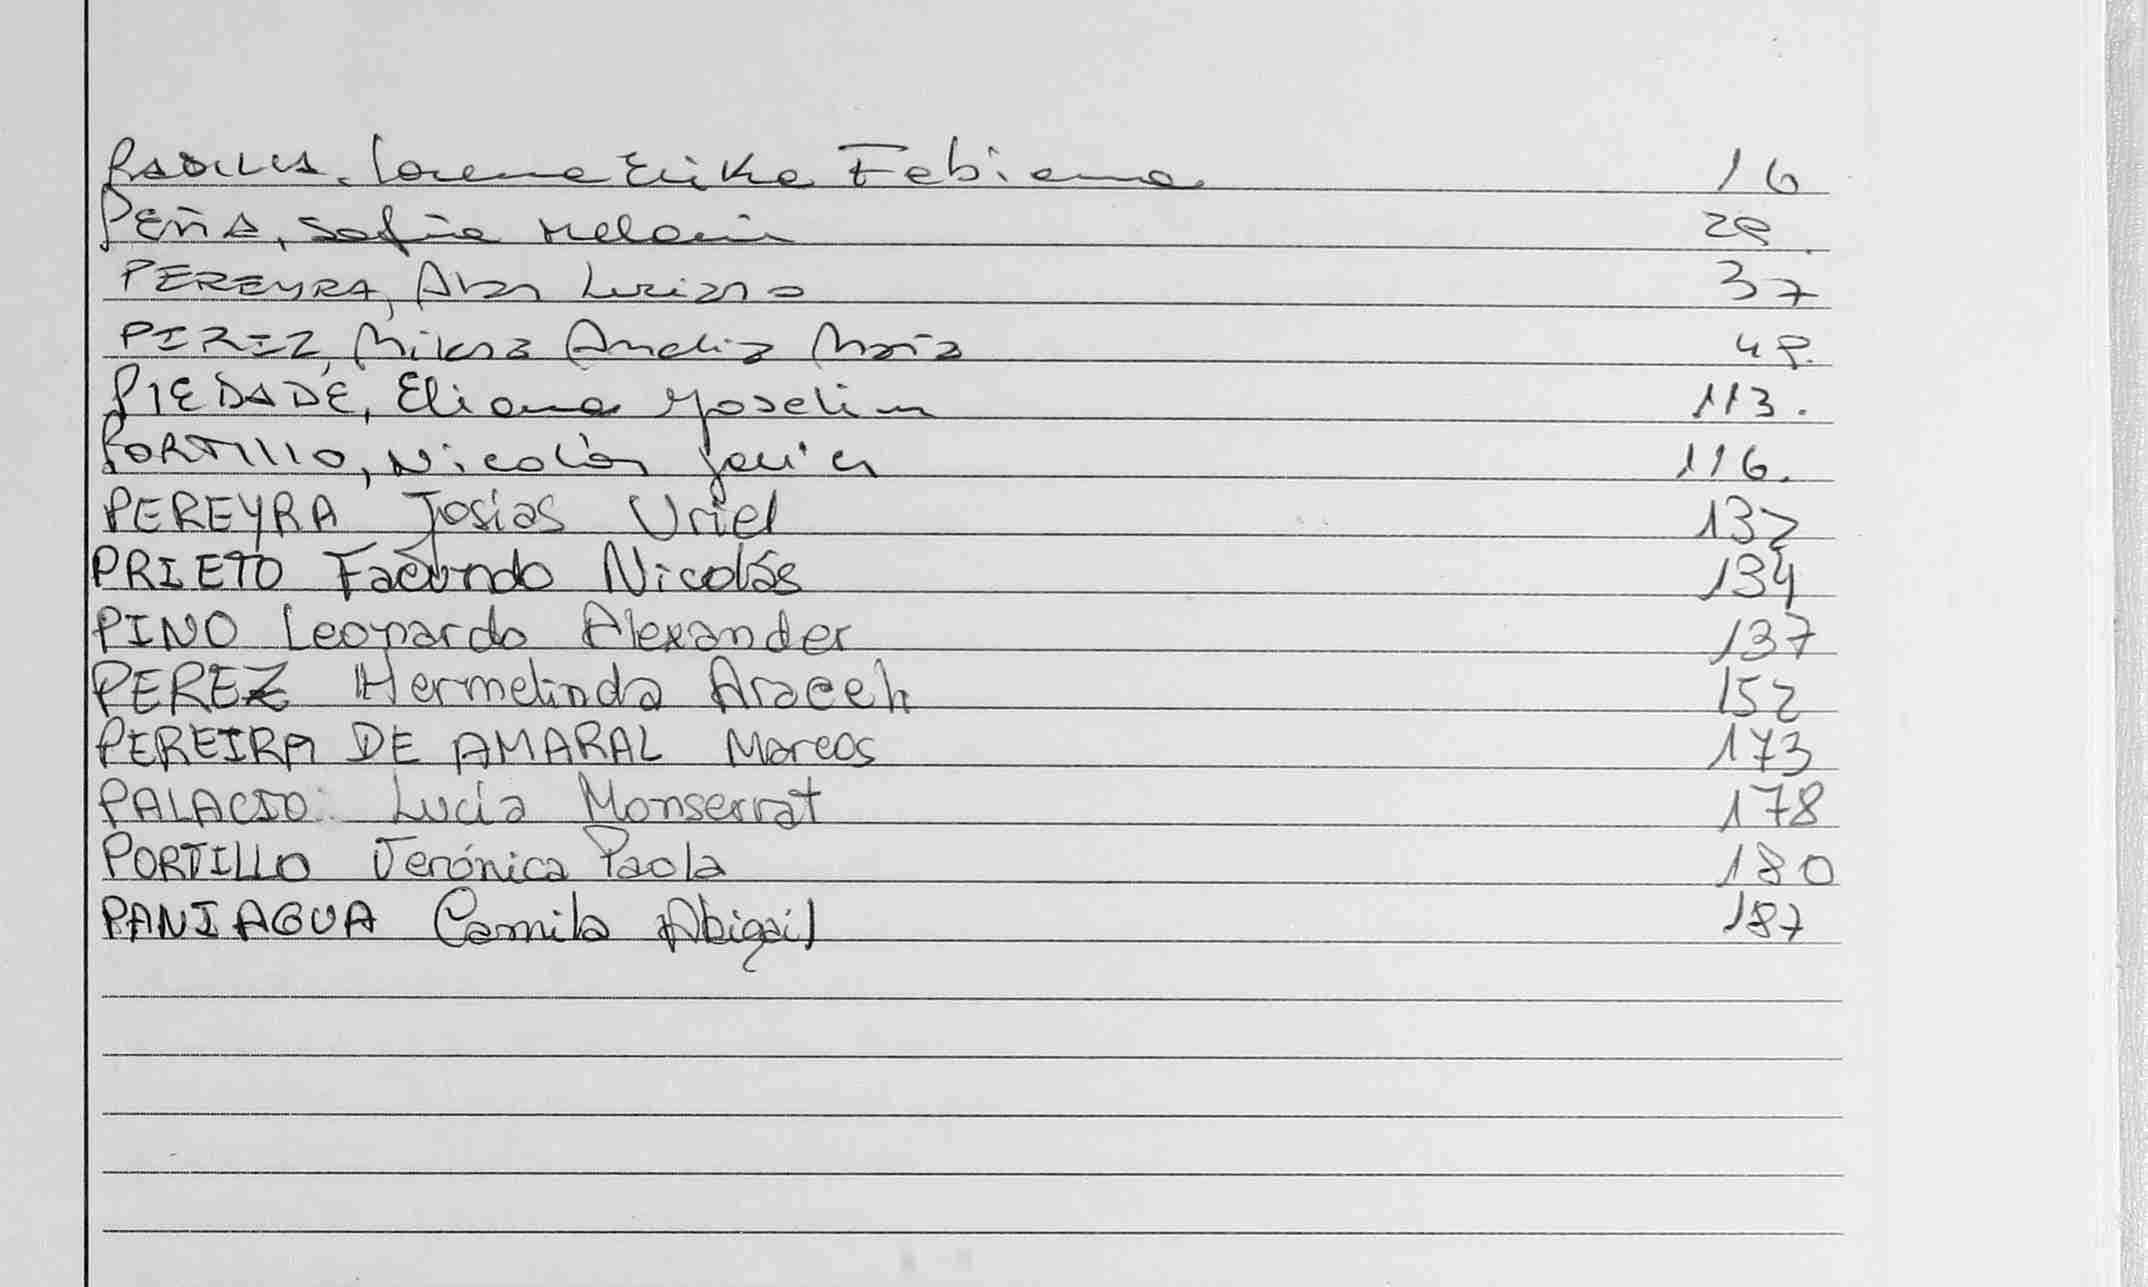 PADILLA, Lorena Erika Fabiana 16
PEÑA, Sofia Melani
PEREYRA, Alan Luciano 37
PEREZ, Milena Maia
PIEDADE, Eliana Yoselin 113.
PORTILLO, Nicolás Javier 116.
PEREYRA Josías Uriel 132
PRIETO Facundo Nicolás 134
PINO Leonardo Alexander 137
PEREZ Hermelinda Araceli 152
PEREIRA DE AMARAL Marcos 173
PALACIO Lucía Monserrat 178
PORTILLO Verónica Paola 180
PANIAGUA Camila Abigail 187